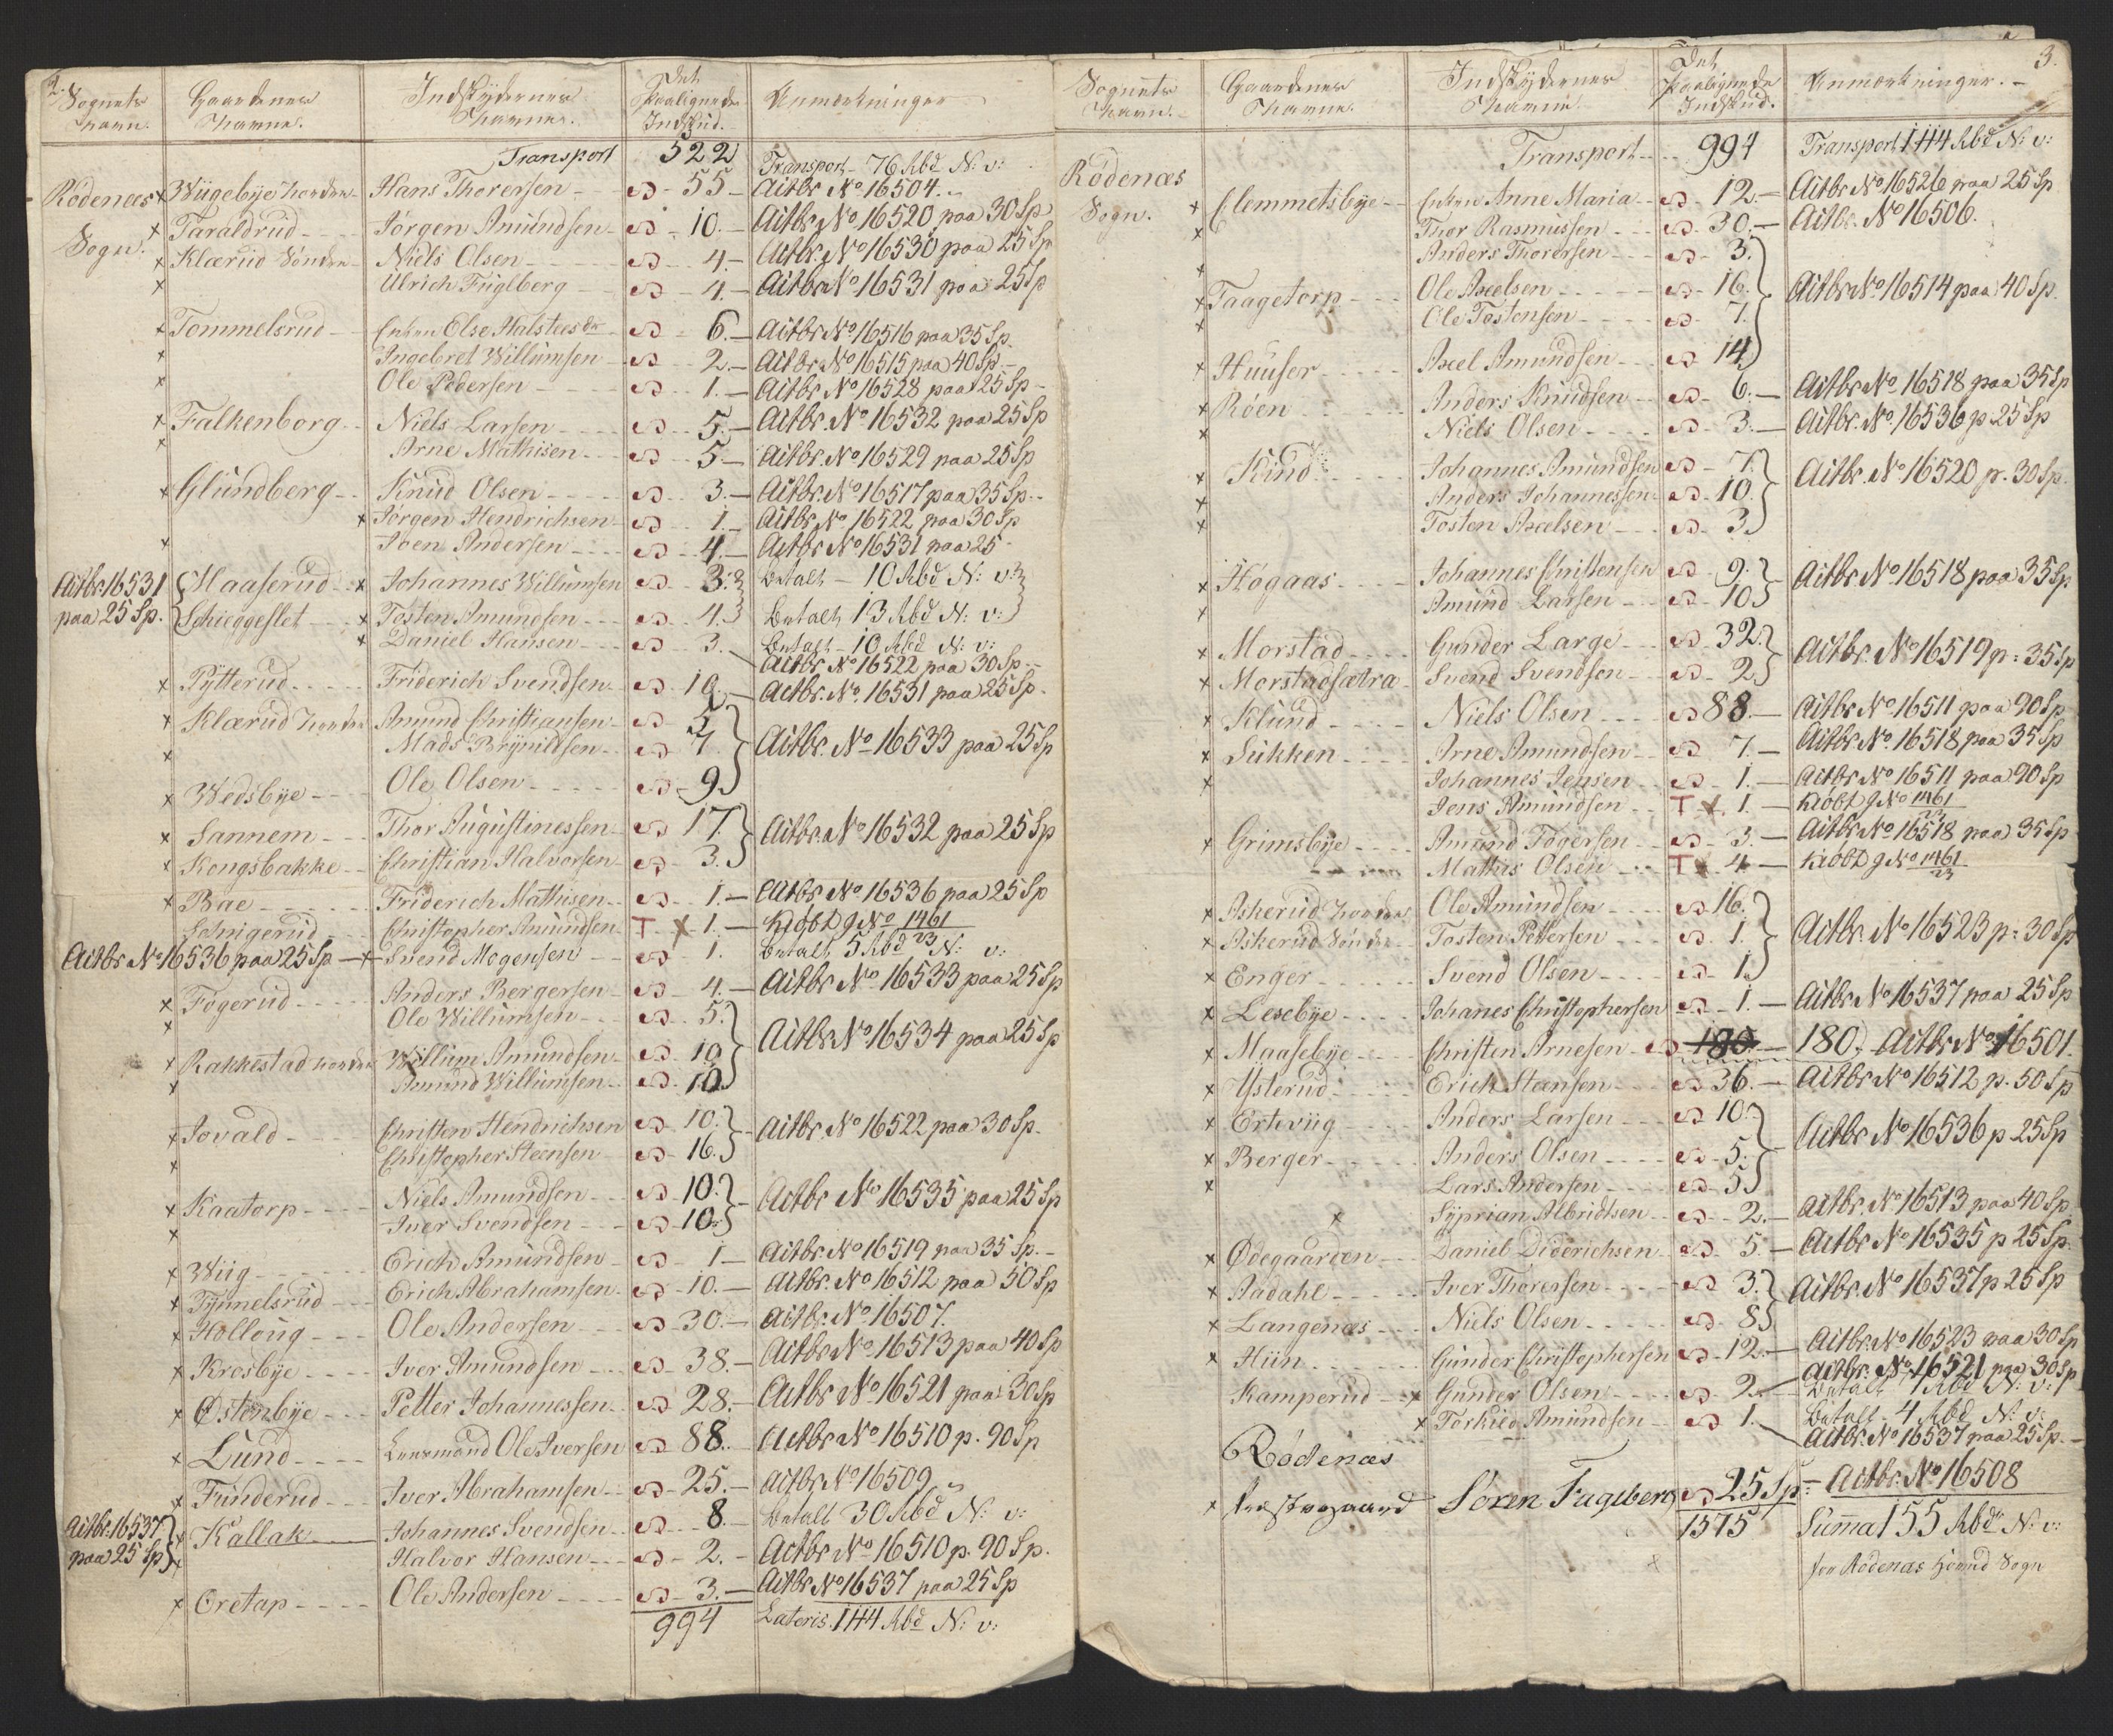 2.
Sognets Navn. Gaardenes Navne. Indskydernes Navne. Det Paalignede Indskud. Anmærkninger
Transport 522 Transport 76 Rbd N: v:
Rödenæs Sogn. x Wügebÿe Hans Thoresen 55 Actbr No 16504.
x Taraldrud Jörgen Amundsen 10. Actbr No 16520 paa 30 Sp
x Klærud Sönder Niels Olsen 4. Actbr. No 16530 paa 25 Sp
x Ulrich Fuglberg 4. Actbr No 16531 paa 25 Sp
x Tommelsrud Enken Else Halsteesdr 6. Actbr No 16516 paa 35 Sp.
x Ingebret Willumsen 2. Actbr No 16515 paa 40 Sp.
x Ole Pedersen 1. Actbr. No 16528 paa 25 Sp
x Falkenborg Niels Larsen 5. Actbr. No 16532 paa 25 Sp
x Arne Mathisen 5 Actbr. No 16529 paa 25 Sp
x Glundberg Knud Olsen 3. Actbr. No 16517 paa 35 Sp.
x Jörgen Hendrichsen 1. Actbr. No 16522 paa 30 Sp
x Joen Andersen 4. Actbr. No 16531 paa 25
Actbr 16531 paa 25 Sp. Maaserud x Johannes Willumsen 3. Betalt 10 Rbd N: v:
Schiedgeslet x Tosten Amundsen 4. Betalt 13 Rbd N: v:
x Daniel Hansen 3. Betalt 10 Rbd N: v:
Actbr. No 16522 paa 30 Sp.
x Pÿtterud Friderich Svendsen 10. Actbr. No 16531 paa 25 Sp.
x Klærud Amund Christiansen 2
x Mads Brÿnildsen 7. Actbr. No 16533 paa 25 Sp
x Wedsbÿe Ole Olsen 9
x Sannem Thor Augustinessen 17. Actbr. No 16532 paa 25 Sp
x Kongsbakke Christian Halvorsen 3.
x Bae Friderich Mathisen 1. Actbr No 16536 paa 25 Sp
Christopher Amundsen T x 1. No 1461/23
Actbr No 16536 paa 25 Sp x Svend Mogensen 1. Betalt 5 Rbd N: v:
x Fögerud Anders Bergersen 4. Actbr No 16533 paa 25 Sp
x Ole Willumsen 5.
x Rakkestad Willum Amundsen 10 Actbr No 16534 paa 25 Sp
x Amund Willumsen 10
x Jovald Christen Hendrichsen 10. Actbr. No 16522 paa 30 Sp.
x Christopher Steensen 16.
x Kaatorp Niels Amundsen 10. Actbr No 16535 paa 25 Sp
x Iver Svendsen 10
x Wiig Erich Amundsen 1 Actbr. No 16519 paa 35 Sp.
x Tÿnnelsrud Erich Abrahamsen 10. Actbr. No 16512 paa 50 Sp
x Hollöug Ole Andersen 30. Actbr. No 16507.
x Krosbÿe Iver Amundsen 38. Actbr No 16513 paa 40 Sp
x Östenbÿe Petter Johannessen 28. Actbr No 16521 paa 30 Sp
x Lund Lensmand Ole Iversen 88. Actbr No 16510 p. 90 Sp
x Funderud Iver Abrahamsen 25. Actbr No 16509
Actbr. 16537 paa 25 Sp x Kallak Johannes Svendsen 8. Betalt 30 Rbd N: v:
x Halvor Hansen 2. Actbr No 16510 p. 90 Sp.
x Oretap Ole Andersen 3. Actbr No 16537 paa 25 Sp
994 Lateris. 144 Rbd N: v:
3.
Sognets Navn. Gaardenes Navne. Indskydernes Navne. Det Paalignede Indskud. Anmærkninger.
Transport 994 Transport 144 Rbd N: v:
Rödenæs Sogn. x Clemmetsbÿe Enken Anne Maria 12. Actbr No 16526 paa 25 Sp
x Thor Rasmussen 30. Actbr. No 16506.
x Anders Thoresen 3.
x Taagetorp Ole Axelsen 16. Actbr No 16514 paa 40 Sp.
x Ole Tostensen 7.
x Huuser Axel Amundsen 14
x Röen Anders Knudsen 6. Actbr No 16518 paa 35 Sp
x Niels Olsen 3. Actbr. No 16536 p 25 Sp
x Kind Johannes Amundsen 7.
x Anders Johannessen 10. Actbr. No 16520 p. 30 Sp.
x Tosten Axelsen 3
x Högaas Johannes Christensen 9. Actbr No 16518 paa 35 Sp.
x Amund Larsen 10
x Morstad Gunder Large 32. Actbr. No 16519 p: 35 Sp
x Morstadsætra Svend Svendsen 2
x Klund Niels Olsen 88. Actbr No 16511 paa 90 Sp
x Sukken Arne Amundsen 7. Actbr No 16518 paa 35 Sp
x Johannes Jensen 1. Actbr No 16511 paa 90 Sp
Jens Amundsen T x 1. No 1461/23
x Grimsbÿe Amund Fögersen 3. Actbr No 16518 paa 35 Sp
Mathis Olsen T x 4 No 1461/23
x Askerud Ole Amundsen 16.
x Askerud Sönder Tosten Pettersen 1. Actbr. No 16523 p: 30 Sp
x Enger Svend Olsen 1
x Lexebÿe Johanes Christophersen 1. Actbr No 16537 paa 25 Sp
x Maasebÿe Christen Arnesen 180. 180. Actbr No 16501.
x Ÿsterud Erich Steensen 36. Actbr No 16512 p. 50 Sp
x Ertevüg Anders Larsen 10.
x Berger Anders Olsen 5. Actbr No 16536 p 25 Sp
x Lars Andersen 5
x Sÿprian Albridtsen 2. Actbr. No 16513 paa 40 Sp
x Ödegaarden Daniel Diderichsen 5. Actbr No 16535 p 25 Sp.
x Aadahl Iver Thoresen 3. Actbr. No 16537 p 25 Sp
x Langenæs Niels Olsen 8
x Hün Gunder Christophersen 12. Actbr. No 16523 paa 30 Sp
Actbr: No 16521 paa 30 Sp
Kamperud x Gunder Olsen 2. Betalt 7 Rbd N: v:
x Torkild Amundsen 1. Betalt 4 Rbd N: v:
Actbr. No 16537 paa 25 Sp.
Rödenæs
x Præstegaard Sören Fuglberg 25 Sp: Actbr. No 16508
1575 Summa 155 Rbd N: v:
for Rödenæs Hoved Sogn